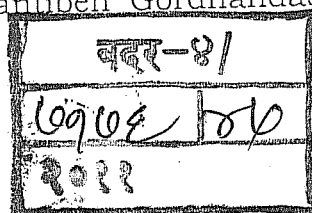 antiben Gordhandas
बदर-४/
७१७६
२०११